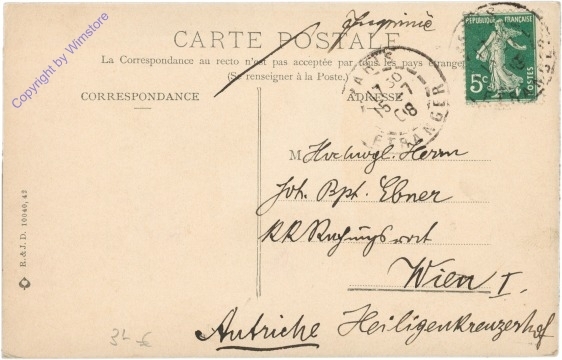 Imprimé
CARTE POSTALE
La Correspondance au recto n'est pas acceptée par tous les pays étrangers
(Se renseigner à la Poste.)
CORRESPONDANCE
ADRESSE
REPUBLIQUE FRANÇAISE
5c
POSTES
PARIS
15 - 7
08
ETRANGER
M Hochwgl. Herrn
Joh. Bpt. Ebner
KK Rechnungsrat
Wien I.
Autriche Heiligenkreuzerhof
R. & J. D. 10040, 42
3L €
Copyright by Wimstore